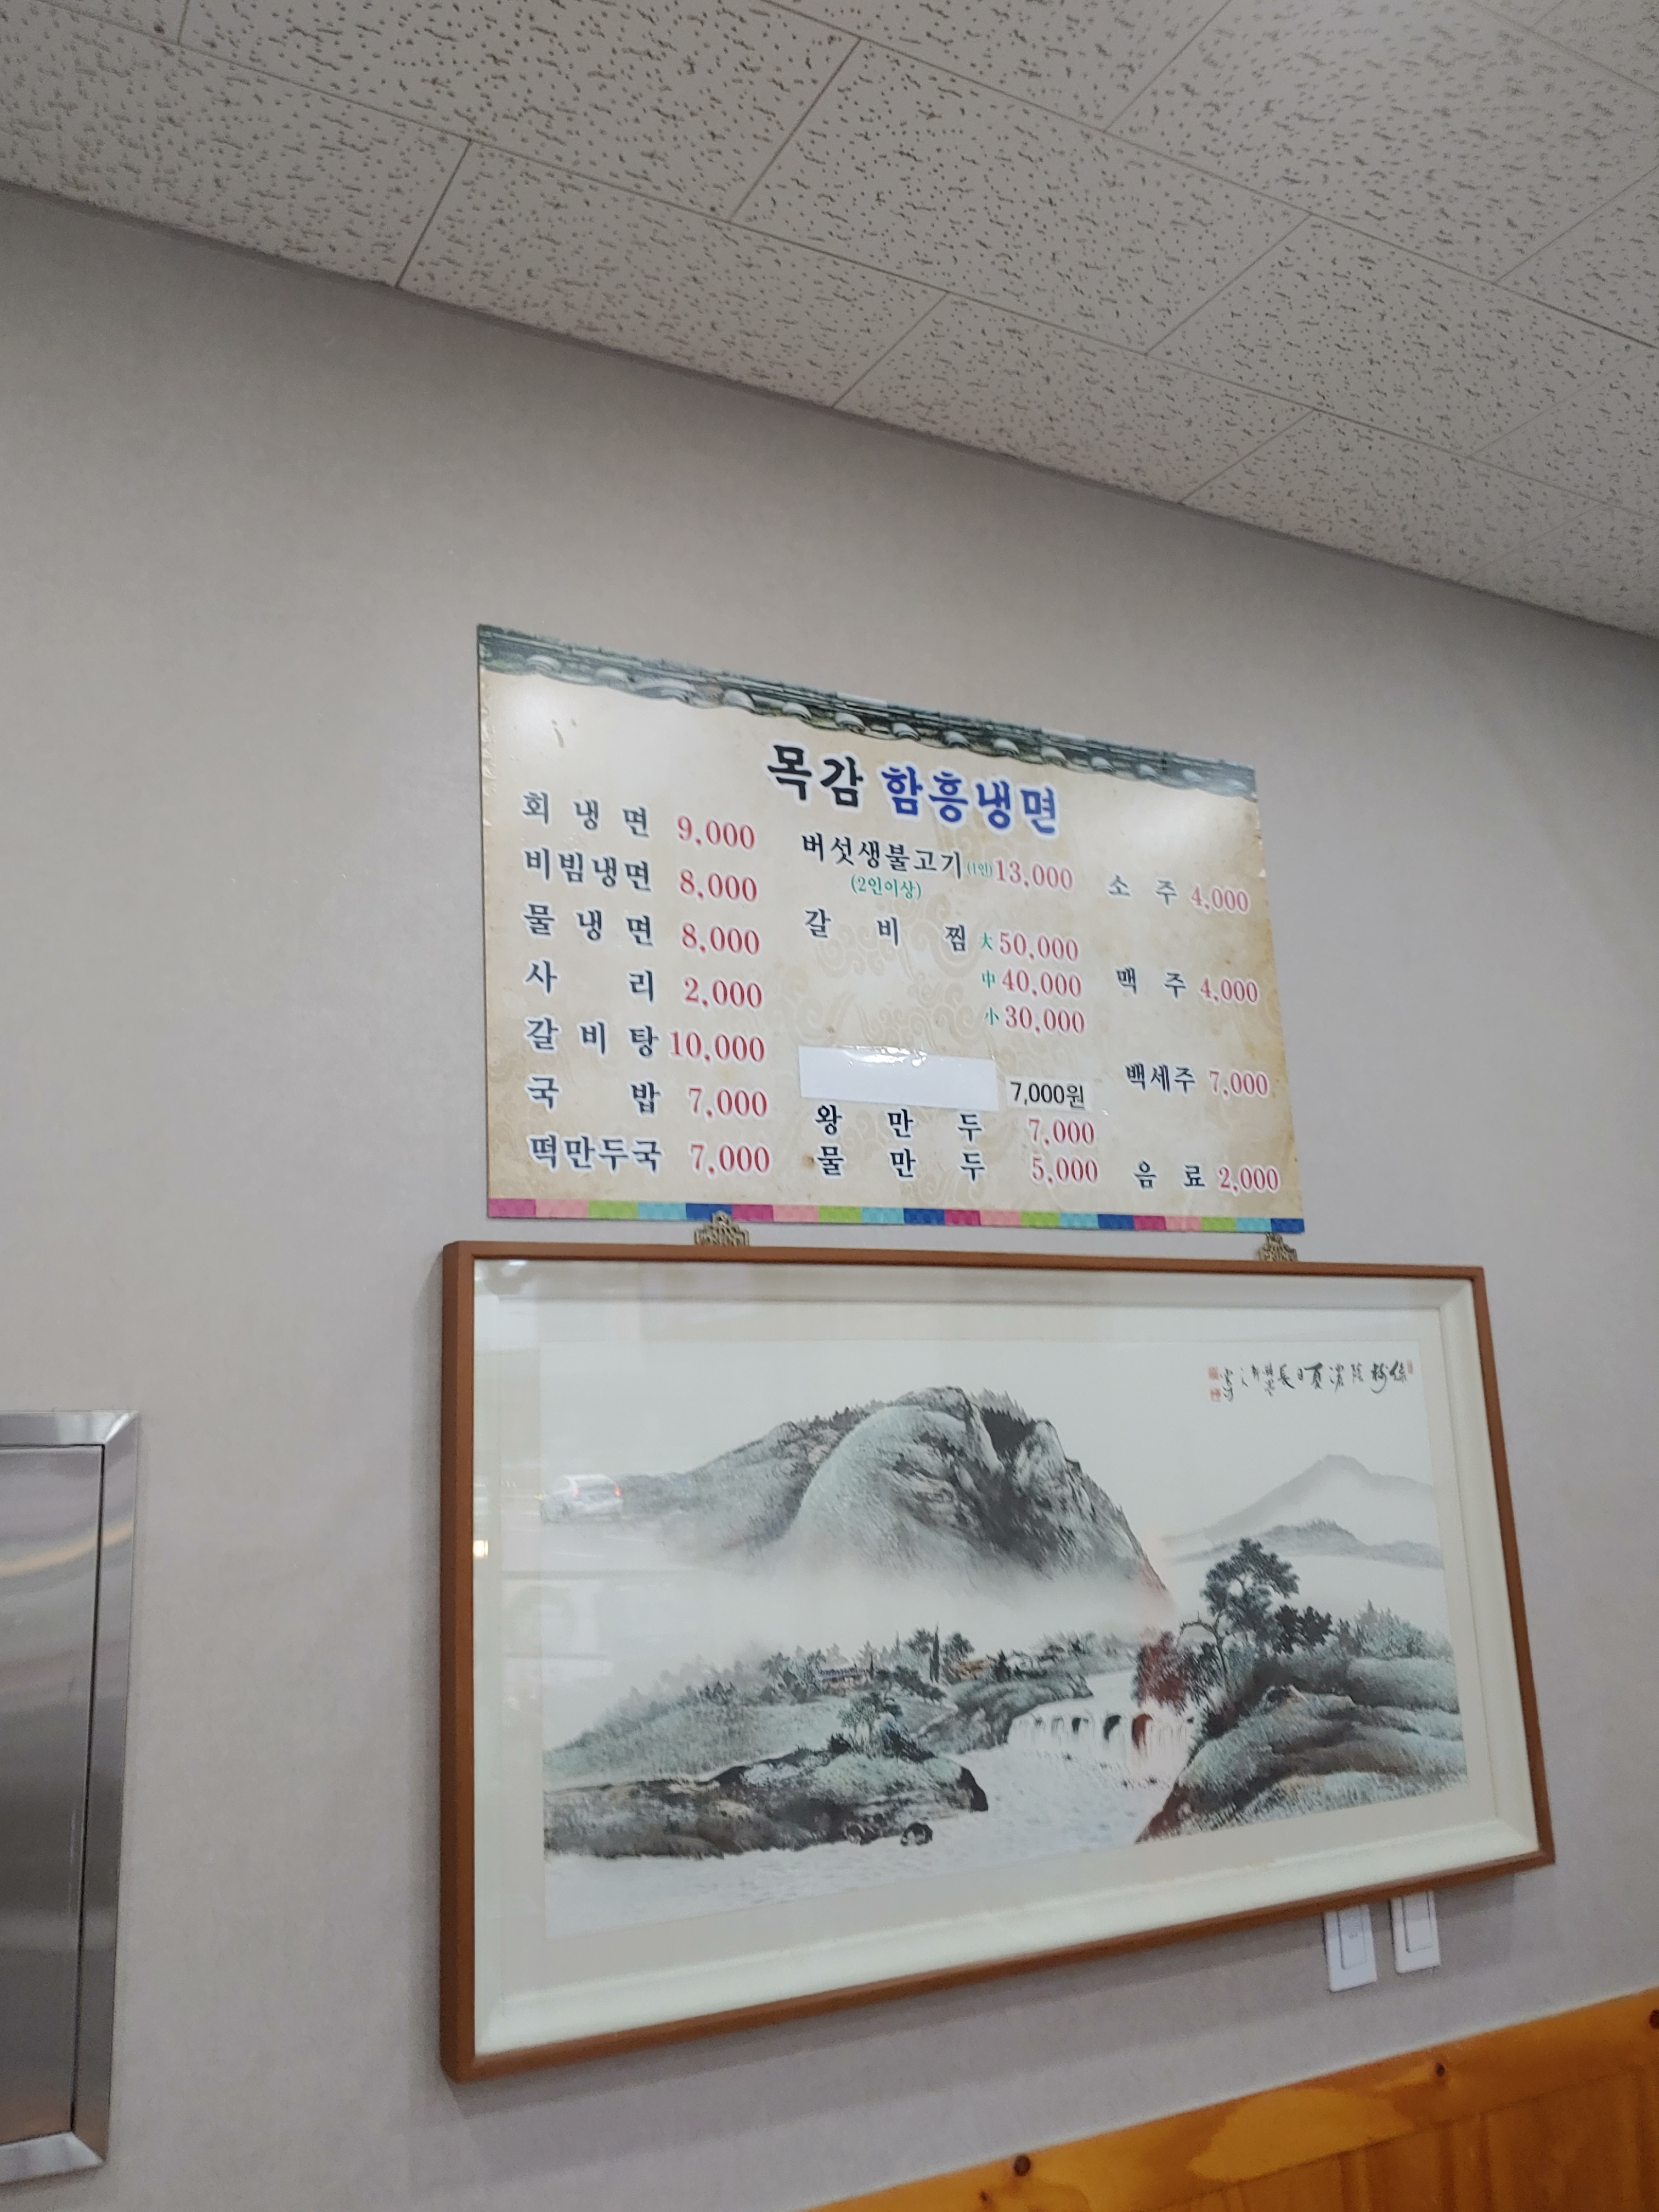 목감 함흥냉면
회 냉 면 9,000
비빔냉면 8,000
물 냉 면 8,000
사 리 2,000
갈 비 탕 10,000
국 밥 7,000
떡만두국 7,000
버섯생불고기(1인)13,000
(2인이상)
갈 비 찜 大50,000
中40,000
小30,000
7,000원
왕 만 두 7,000
물 만 두 5,000
소 주 4,000
맥 주 4,000
백세주 7,000
음 료 2,000